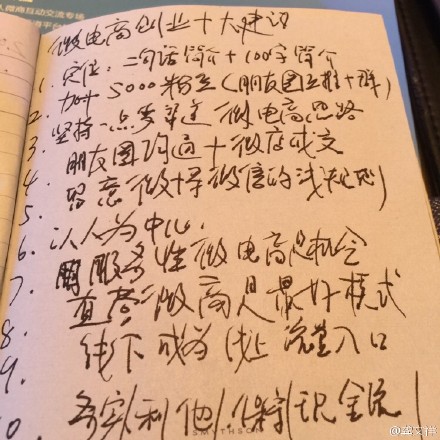 微电商创业十大建议
1. 定位:一句话简介+100字简介
2. 加 5000粉丝(朋友圈互推+群)
3. 坚持一点 微电商思路
4. 朋友圈沟通+微店成交
5. 留意微博微信的浅规则
6. 以人为中心.
7. 服务性微电商是机会
8. 直营微商是最好模式
9. 线下成为线上流量入口
10 务实利他保持现金流!
SMYTHSON
微商互动交流专场